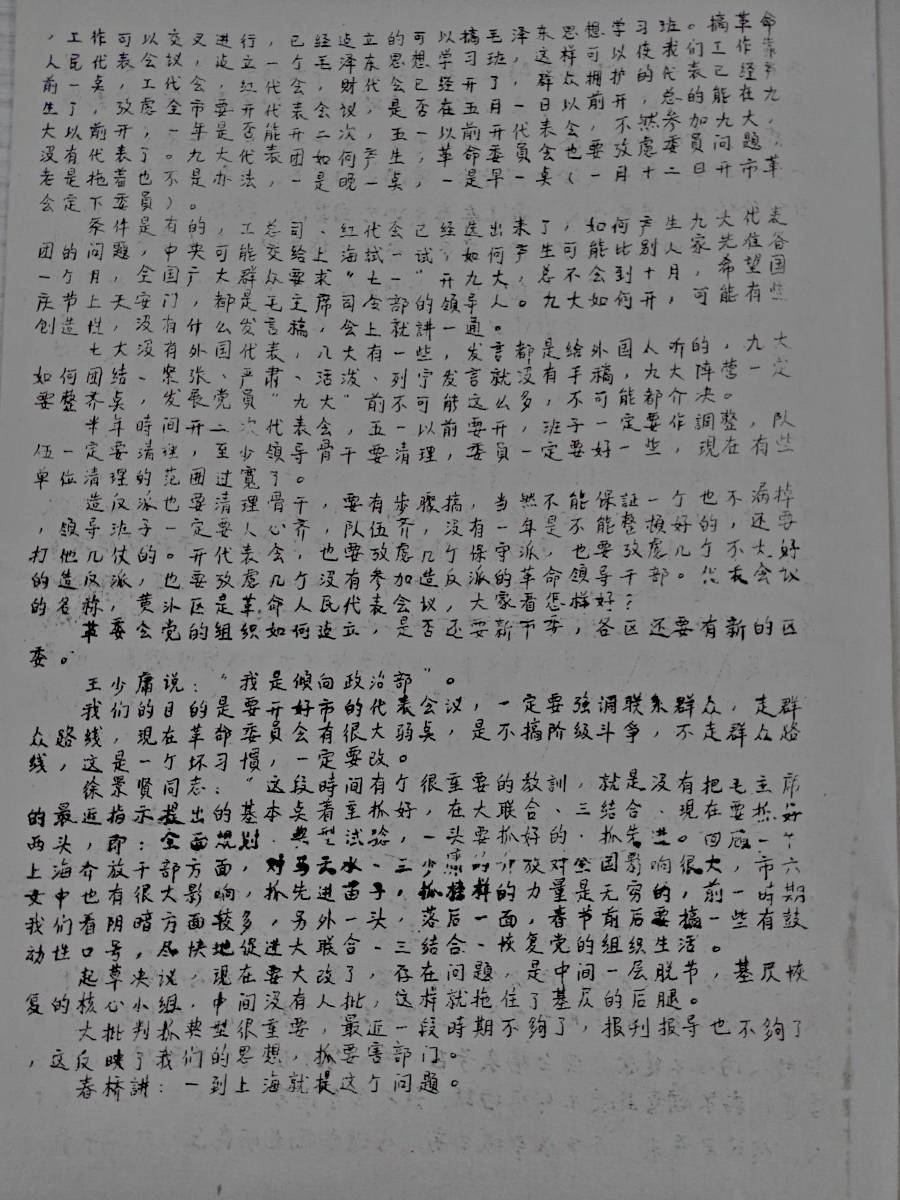 ，工作可以交叉进行，已经迠立的可以搞毛泽东思想学习班。搞革命
人民代表会议，迠立一个毛泽东思想学习班，这样可以使我们工作靠
前一桌，工代会，红代会，财代会已经开了，群众拥护的代表已经产
生了，攷虑全市要开代表会议，是否在五月一日以前开，总的能在九
大以前开；一年是否能开二次，五一以前开代表会，不然参加九大，
没有代表了。九大代表团如何产生；革命委員会也要攷虑委員问题，
老是拖着也不是办法，一是晚一桌，一是早一桌（一月十二日开市革
会定下委員）。
条件是有的，工总司、红代会已经选出来了，如何产生九大代表
团的问题，中央可能交给上海拭一试，如何产生可能比别人家先准各
一个月，全国广大群众要求“七一”开九大，总不会到十月，希望国
庆节上天安门，都是毛主席司令部的领导人。九大如何开，可能有些
创造性，没有什么发言稿，会上就讲一通。
七大没有外国代表，八大有一些，发言都是给外国人听的，九大
如何团结、紧张、严肃、活泼、列宁发言就没有手稿，九大阵营一定
要整齐桌，发展党员“九大”前不可能这么多，不可能都介决。
半年時间开二次代表会，五一以前要开，班子一定要作調整，队
伍一定要清理，至少领导骨干要清理，委員一定要好一些，现在有些
单位清理的范围过寬了。
造反派也要清理骨干，要有步驟搞，当然不能保証一个也不漏掉
，领导班子一定要人心齐，队伍齐，没有一年是不能整頓好的，还要
打他几仗的。开代表会，也要攷虑几个保守派，也要攷虑几个不大好
的造反派，也要攷虑几个没有参加造反派的革命领导干部。代表会议
的名称，黄浦区是革命人民代表会议，大家看怎样好？
革委会党的组织如何迠立，是否还要新市委，各区还要有新的区
委。
王少庸说：“我是倾向政治部”。
我们的目的是要开好市的代表会议，一定要强调联系群众，走群
众路线，现在革命委員会有很大弱桌，是不搞阶级斗争，不走群众路
线，这是一个坏习慣，一定要改。
徐景贤同志：“这段時间有个很重要的教訓，就是没有把毛主席
的最近指示提出的基本桌着重抓好，在大联合、三结合、现在要抓好
两头，即：全面规划、典型试驗，一头要抓好的、抓先进。回顾一下
上海介放干部方面，对马天水、王少庸的介放对全国影响很大，市六
女中也有很大影响，抓先进苗子，抓榜样的力量是无穷的，前一時期
我们看阴暗方面较多，另外一头，落后一面，春节前后要搞一些有鼓
动性口号，尽快地促进大联合、三结合、恢复党的组织生活。
起草决议，现在要大改了，存在问題，是中间一层脱节，基层恢
复的核心小组，中间没有人批，这样就拖住了基层的后腿。
大批判抓典型很重要，最近一段時期不夠了，报刊报导也不夠了
，这反映了我们的思想，抓要害部门。
春桥講：一到上海就提这个问题。